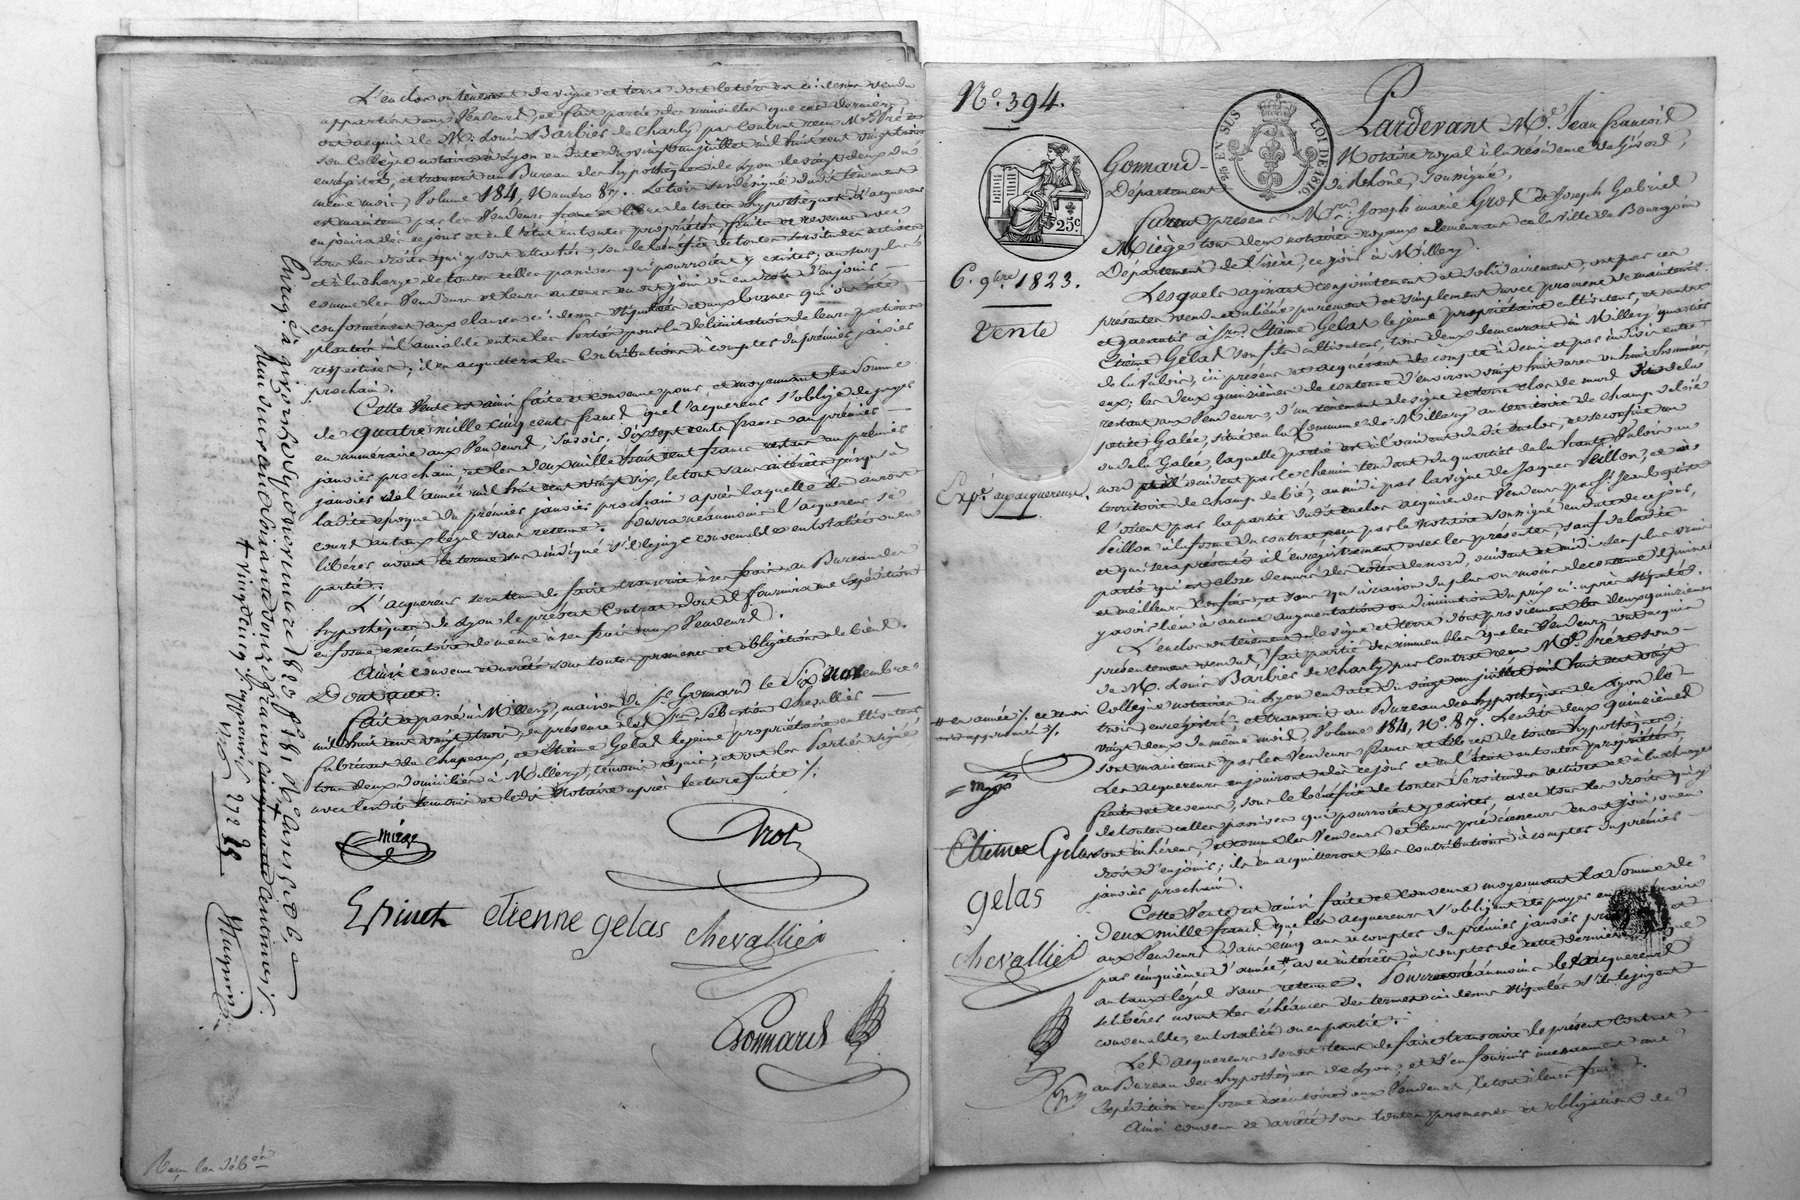 L'enclos ou tènement de vigne et terre dont le tiers est ci-dessus vendu
appartient aux Vendeurs, et fait partie des immeubles que ces derniers
ont acquis de Mr. Louis Barbiés de Charly par Contrat reçu Me. Fré et
son Collègue notaires à Lyon en date du vingt un juillet mil huit cent vingt trois
enregistré, et transcrit au Bureau des hypothèques de Lyon le vingt deux du
même mois, Volume 184, Numéro 87. Le tiers susdésigné du dit tènement
est maintenu par les Vendeurs franc et libre de toutes hypothèques. L'acquéreur
en jouira dès ce jour et en l'état en toute propriété, fruits et revenus avec
tous les droits qui y sont attachés, sous le bénéfice de toutes servitudes actives
et à la charge de toutes celles passives qui pourroient y exister, au surplus
comme les Vendeurs et leurs auteurs en ont joui ou eu droit d'en jouir
conformément aux clauses ci-dessus stipulées et aux bornes qui ont été
plantées à l'amiable entre les parties pour la délimitation de leurs portions
respectives; il en acquittera les Contributions à compter du premier janvier
prochain.
Cette Vente est ainsi faite et convenue pour et moyennant la Somme
de quatre mille cinq cents francs que l'acquéreur s'oblige de payer
en numéraire aux Vendeurs, savoir: dix sept cents francs au premier
janvier prochain, et les deux mille huit cent francs restant au premier
janvier de l'année mil huit cent vingt six, le tout sans intérêts jusqu'à
ladite époque du premier janvier prochain après laquelle ils auront
cours au taux légal sans retenue. Pourra néanmoins l'acquéreur se
libérer avant le terme sus indiqué s'il le juge convenable en totalité ou en
partie.
L'acquéreur sera tenu de faire transcrire à ses frais au Bureau des
hypothèques de Lyon le présent Contrat dont il fournira une Expédition
en forme exécutoire de même à ses frais aux Vendeurs.
Ainsi convenu et arrêté sous toutes promesses et obligations de biens.
Dont acte.
Fait et passé à Millery, maison du Sr. Gonnard le Six novembre
mil huit cent vingt trois, en présence de Srs. Sébastien Chevallier
fabricant de Chapeaux, et Etienne Gelas le jeune propriétaire cultivateur
tous deux domiciliés à Millery, témoins requis; et ont les Parties signé
avec lesdits témoins et ledit Notaire après lecture faite ./.
Miège
Grol
Epinet etienne gelas chevallier
Gonnard
Enreg. à givors le sept novembre 1823 f° 181
N°. 394.
Pardevant Me. Jean françois
Gonnard Notaire royal à la résidence de Givors,
Département du Rhône, soussigné,
LOI DE 1816.
25c
6. 9bre. 1823.
Vente
Expn. aux acquéreurs.
furent présens Mrs. Joseph marie Grol et Joseph Gabriel
Miège tous deux notaires royaux demeurans en la ville de Bourgoin
Département de l'Isère, ce jour à Millery.
Lesquels agissant conjointement et solidairement, ont par ces
présentes vendu et aliéné purement et simplement avec promesse de maintenir
et garantir à Srs. Etienne Gelas le jeune propriétaire cultivateur, et autre
Etienne Gelas son fils cultivateur, tous deux demeurant à Millery quartier
de la Valois, ici présens et acquérans de compte à demi et pas indivis entre
eux; les deux quinzièmes de contenue d'environ vingt huit ares ou huit hommées
restant aux Vendeurs, d'un tènement de vigne et terre clos de murs
petite Galée, situé en la Commune de Millery au territoire de champ de bié
ou de la Galée, laquelle partie est à l'occident du dit enclos, et se confine au
nord par le chemin tendant du quartier de la Valois au
territoire de champ de bié; au midi par la vigne de Jaques Peillon; et à
l'orient par la partie du dit enclos acquise des Vendeurs par Sr. Jean baptiste
Peillon à la forme du contrat reçu par le Notaire soussigné en date de ce jour,
et qui sera présenté à l'enregistrement avec les présentes
L'enclos ou tènement de vigne et terre dont proviennent les deux quinzièmes
présentement vendus, fait partie des immeubles que les Vendeurs ont acquis
de Mr. Louis Barbiés de charly par Contrat reçu Me. Fré et son
Collègue notaires à Lyon en date du vingt un juillet mil huit cent vingt
trois, enregistré, et transcrit au Bureau des hypothèques de Lyon le
vingt deux du même mois, Volume 184, N°. 87. Lesdits deux quinzièmes
sont maintenus par les Vendeurs francs et libres de toutes hypothèques;
Les acquéreurs en jouiront dès ce jour et en l'état en toute propriété,
fruits et revenus, sous le bénéfice de toutes Servitudes actives et à la charge
de toutes celles passives qui pourroient y exister, avec tous les droits qui y
sont inhérens, et comme les Vendeurs et leurs prédécesseurs en ont joui, ou eu
droit d'en jouir; ils en acquitteront les contributions à compter du premier
janvier prochain.
Etienne Gelas
gelas
chevallier
Cette Vente est ainsi faite et convenue moyennant la Somme de
deux mille francs que les acquéreurs s'obligent de payer en numéraire
aux Vendeurs dans cinq ans à compter du premier janvier prochain et
par cinquièmes d'année, avec intérêts à compter de cette dernière époque
au taux légal sans retenue. Pourront néanmoins les acquéreurs
se libérer avant les échéances des termes ci-dessus stipulés s'ils le jugent
convenable, en totalité ou en partie.
Les acquéreurs seront tenus de faire transcrire le présent Contrat
au Bureau des hypothèques de Lyon, et d'en fournir incessamment une
Expédition en forme exécutoire aux Vendeurs, le tout à leurs frais.
Ainsi convenu et arrêté sous toutes promesses et obligations de